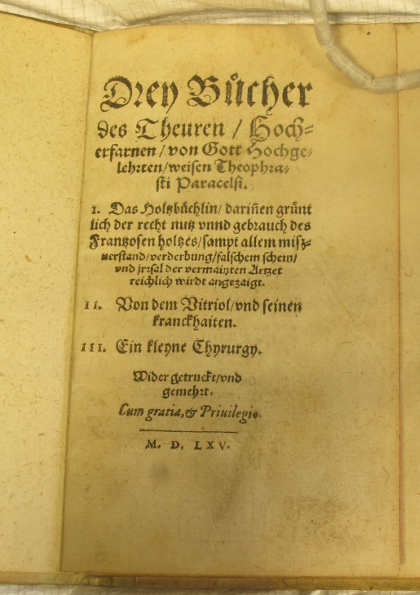 Drey Bůcher
des Theuren / Hoch=
erfarnen / von Gott Hochge=
lehrten/weisen Theophra=
sti Paracelsi.
I. Das Holtzbůchlin/ dariñen grünt
lich der recht nutz vnnd gebrauch des
Frantzosen holtzes/sampt allem misz=
uerstand/verderbung/falschem schein/
vnd jrrsal der vermainten Artzet
reichlich wirdt angezaigt.
II. Von dem Vitriol/vnd seinen
kranckhaiten.
III. Ein kleyne Chyrurgy.
Wider getruckt/vnd
gemehrt.
Cum gratia, & Priuilegio.
M. D. LXV.